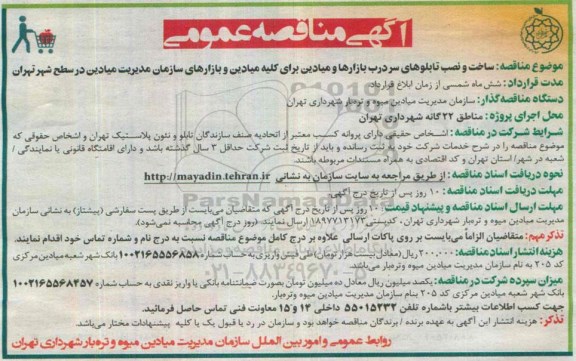 آگهی مناقصه عمومی
موضوع مناقصه: ساخت و نصب تابلوهای سر درب بازارها و میادین برای کلیه میادین و بازارهای سازمان مدیریت میادین در سطح شهر تهران
مدت قرارداد: شش ماه شمسی از زمان ابلاغ قرارداد
دستگاه مناقصه‌گذار: سازمان مدیریت میادین میوه و تره‌بار شهرداری تهران
محل اجرای پروژه: مناطق ۲۲ گانه شهرداری تهران
شرایط شرکت در مناقصه: اشخاص حقیقی دارای پروانه کسب معتبر از اتحادیه صنف سازندگان تابلو و نئون پلاستیک تهران و اشخاص حقوقی که
موضوع مناقصه را در شرح خدمات شرکت خود به ثبت رسانده و باید از تاریخ ثبت شرکت حداقل ۳ سال گذشته باشد و دارای اقامتگاه قانونی یا نمایندگی /
شعبه در شهر/ استان تهران و کد اقتصادی به همراه مستندات مربوطه باشند.
نحوه دریافت اسناد مناقصه: از طریق مراجعه به سایت سازمان به نشانی http://mayadin.tehran.ir
مهلت دریافت اسناد مناقصه: ۱۰ روز پس از تاریخ درج آگهی
مهلت ارسال اسناد مناقصه و پیشنهاد قیمت: روز پس از تاریخ درج آگهی که متقاضیان می‌بایست از طریق پست سفارشی (پیشتاز) به نشانی سازمان
مدیریت میادین میوه و تره‌بار شهرداری تهران، کدپستی ۱۸۹۷۷۱۳۱۷۳ ارسال نمایند. (روز درج آگهی محاسبه نمی‌شود).
تذکر مهم: متقاضیان الزاماً می‌بایست بر روی پاکات ارسالی علاوه بر درج کامل موضوع مناقصه نسبت به درج نام و شماره تماس خود اقدام نمایند.
هزینه انتشار اسناد مناقصه: ۲۰۰,۰۰۰ ریال (معادل بیست هزار تومان) طی فیش واریزی به حساب شماره ۱۰۰۲۱۶۵۵۵۶۸۵۸ بانک شهر شعبه میادین مرکزی
کد ۲۰۵ به نام سازمان مدیریت میادین میوه و تره‌بار می‌باشد.
میزان سپرده شرکت در مناقصه: یکصد میلیون ریال معادل ده میلیون تومان بصورت ضمانتنامه بانکی یا واریز نقدی به حساب شماره ۱۰۰۲۱۶۵۵۶۸۴۵۷
بانک شهر شعبه میادین مرکزی کد ۲۰۵ بنام سازمان مدیریت میادین میوه وتره‌بار.
جهت کسب اطلاعات بیشتر با شماره تلفن ۵۵۰۱۵۲۳۳ داخلی ۱۴ و ۱۵ معاونت فنی تماس حاصل فرمائید.
تذکر: هزینه انتشار این آگهی به عهده برنده / برندگان مناقصه خواهد بود و سازمان در رد یا قبول یک یا کلیه پیشنهادات مختار می‌باشد.
روابط عمومی و امور بین الملل سازمان مدیریت میادین میوه و تره‌بار شهرداری تهران
ParsNamadData
۰۲۱-۸۸۳۴۹۶۷۰